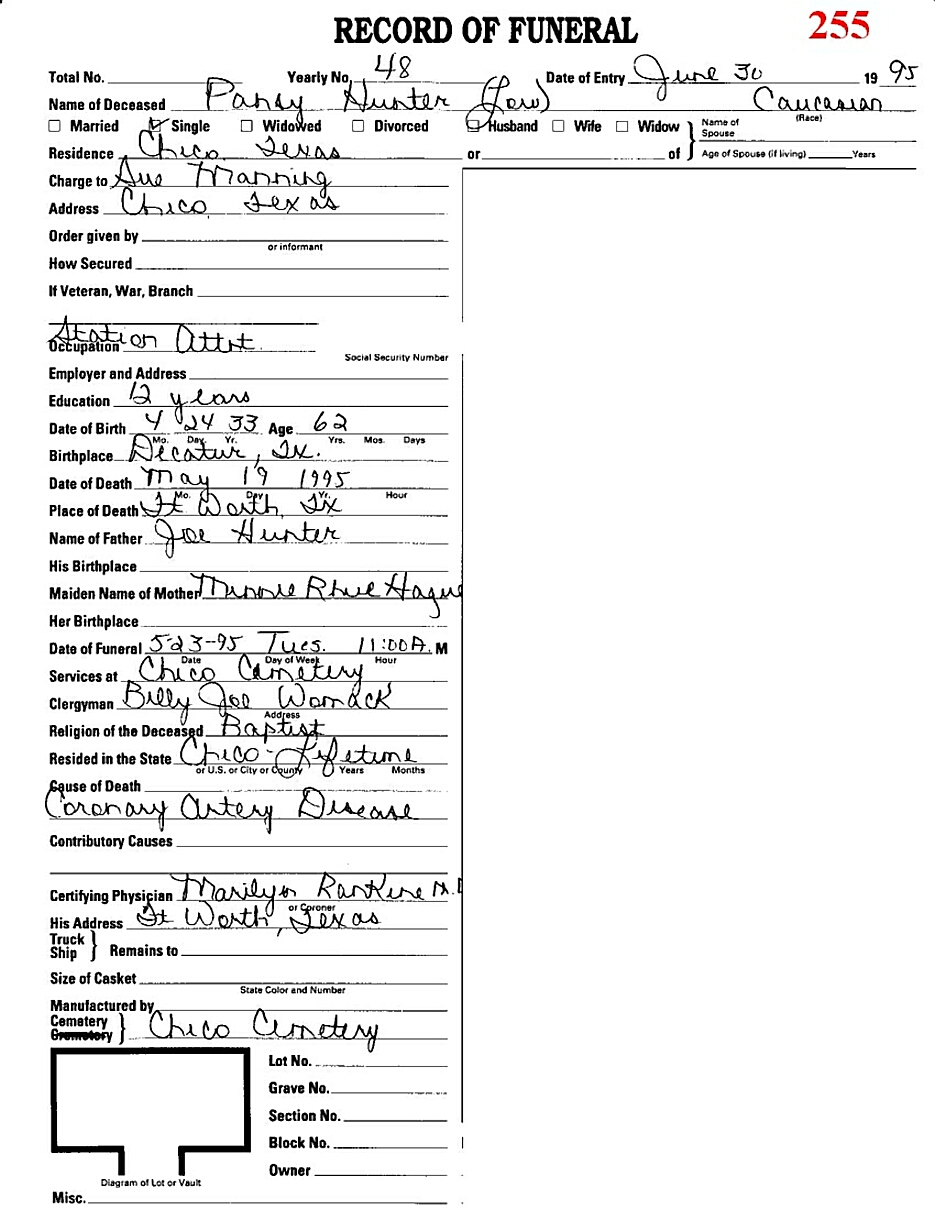 RECORD OF FUNERAL 255
Total No. Yearly No. 48 Date of Entry June 30 19 95
Name of Deceased Pansy Hunter (Low) Caucasian
(Race)
☐ Married ☑ Single ☐ Widowed ☐ Divorced ☐ Husband ☐ Wife ☐ Widow } Name of Spouse
Residence Chico Texas or of Age of Spouse (if living) Years
Charge to Sue Manning
Address Chico Texas
Order given by
or informant
How Secured
If Veteran, War, Branch
Occupation Station Attnt.
Social Security Number
Employer and Address
Education 12 years
Date of Birth 4 24 33 Age 62
Mo. Day. Yr. Yrs. Mos. Days
Birthplace Decatur, Tx.
Date of Death May 19 1995
Mo. Day Yr. Hour
Place of Death Ft Worth, Tx
Name of Father Joe Hunter
His Birthplace
Maiden Name of Mother Minnie Rhue Hague
Her Birthplace
Date of Funeral 5-23-95 Tues. 11:00 A. M
Date Day of Week Hour
Services at Chico Cemetery
Clergyman Billy Joe Womack
Address
Religion of the Deceased Baptist
Resided in the State Chico - Lifetime
or U.S. or City or County Years Months
Cause of Death
Coronary Artery Disease
Contributory Causes
Certifying Physician Marilyn Rankine M.D
or Coroner
His Address Ft Worth, Texas
Truck
Ship } Remains to
Size of Casket
State Color and Number
Manufactured by
Cemetery
Crematory } Chico Cemetery
Lot No.
Grave No.
Section No.
Block No.
Owner
Diagram of Lot or Vault
Misc.